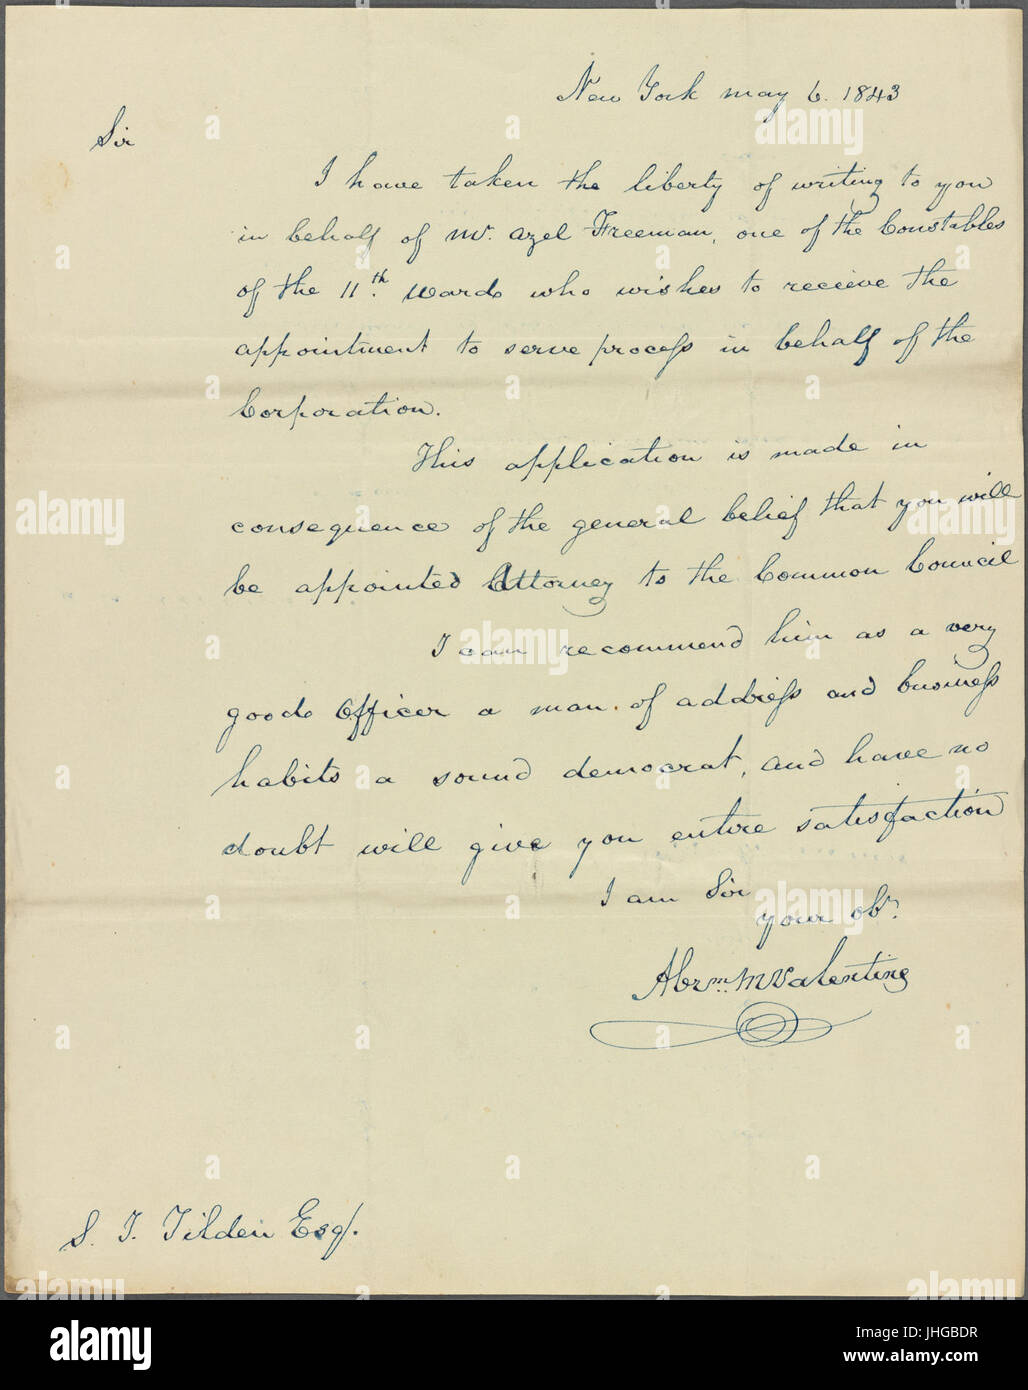 New York may 6. 1843
Sir
I have taken the liberty of writing to you
in behalf of Mr. Azel Freeman, one of the Constables
of the 11th. Ward who wishes to receive the
appointment to serve process in behalf of the
Corporation.
This application is made in
consequence of the general belief that you will
be appointed Attorney to the Common Council
I can recommend him as a very
good Officer a man of address and business
habits a sound democrat, and have no
doubt will give you entire satisfaction
I am Sir
your obt.
Abrm. M Valentine
S. J. Tilden Esq.
alamy stock photo
JHGBDR
www.alamy.com